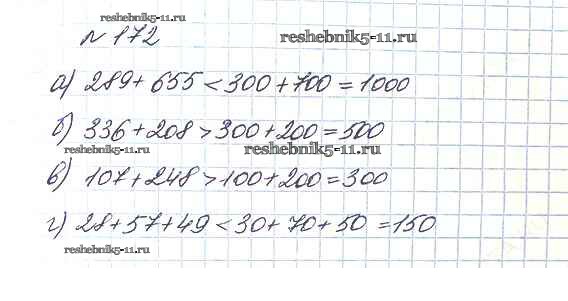 reshebnik5-11.ru
№172
reshebnik5-11.ru
а) 289+655<300+700=1000
б) 336+208>300+200=500
reshebnik5-11.ru
reshebnik5-11.ru
в) 107+248>100+200=300
г) 28+57+49<30+70+50=150
reshebnik5-11.ru